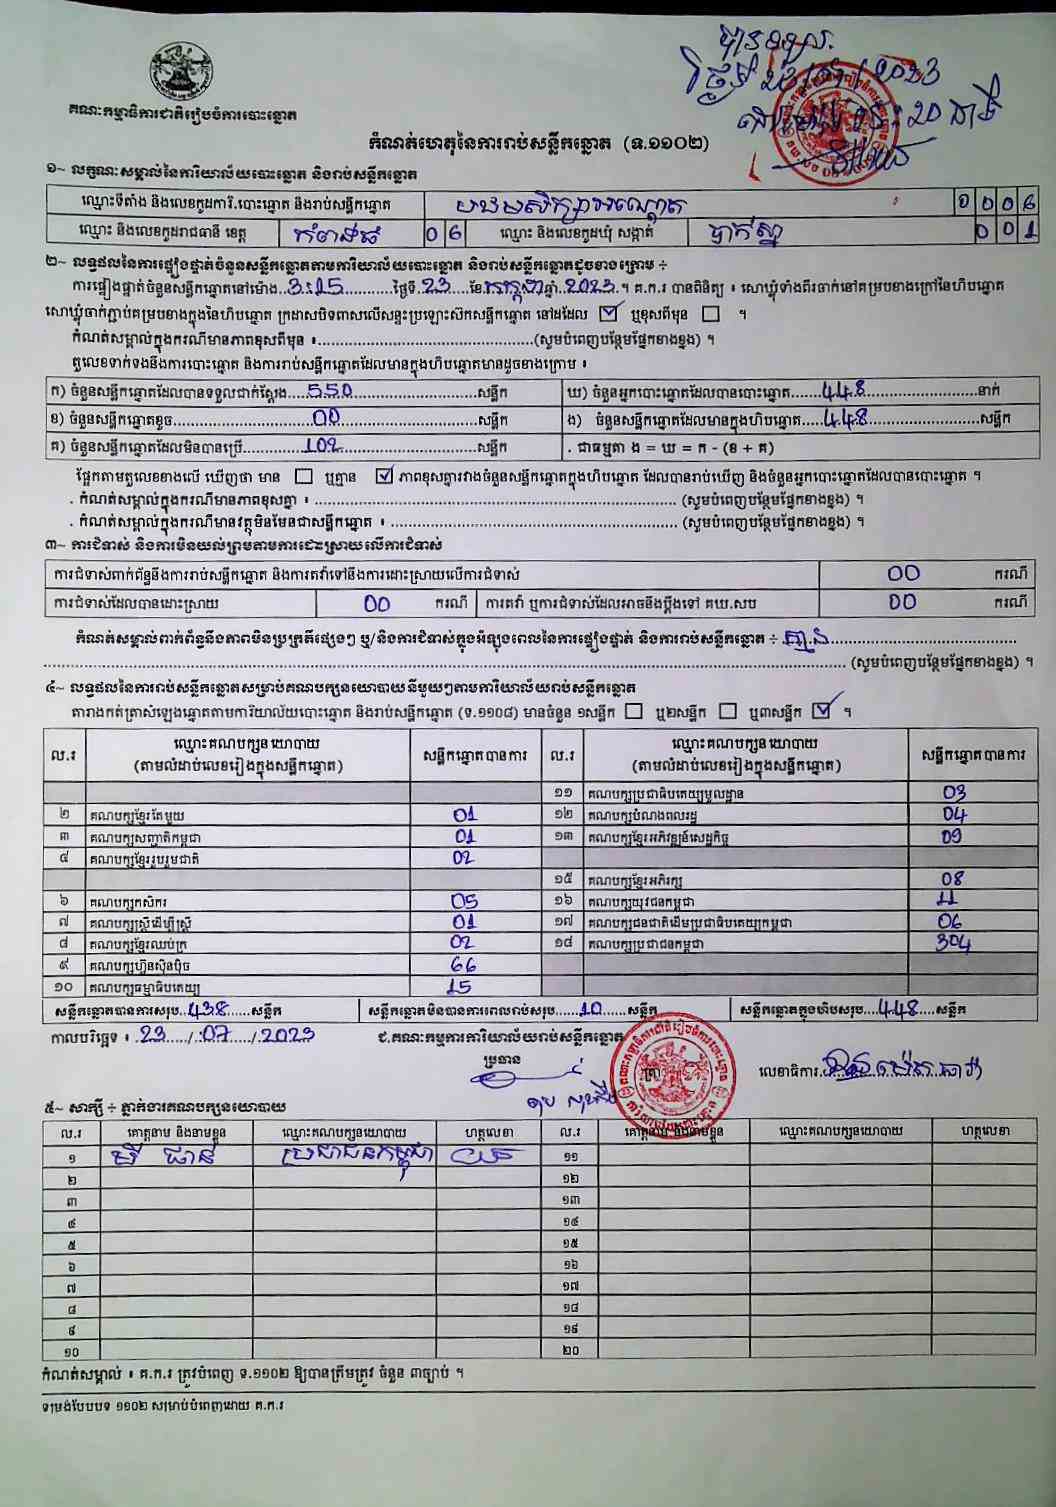 បានទទួល
គណៈកម្មាធិការជាតិរៀបចំការបោះឆ្នោត
កំណត់ហេតុនៃការរាប់សន្លឹកឆ្នោត (ទ.១១០២)
១~ លក្ខណៈសម្គាល់នៃការិយាល័យបោះឆ្នោត និងរាប់សន្លឹកឆ្នោត
ឈ្មោះទីតាំង និងលេខកូដការិ.បោះឆ្នោត និងរាប់សន្លឹកឆ្នោត បឋមសិក្សាអណ្តោត 0006
ឈ្មោះ និងលេខកូដរាជធានី ខេត្ត កំពង់ធំ 06 ឈ្មោះ និងលេខកូដឃុំ សង្កាត់ បាក់ស្នា 001
២~ លទ្ធផលនៃការផ្ទៀងផ្ទាត់ចំនួនសន្លឹកឆ្នោតតាមការិយាល័យបោះឆ្នោត និងរាប់សន្លឹកឆ្នោតដូចខាងក្រោម ÷
ការផ្ទៀងផ្ទាត់ចំនួនសន្លឹកឆ្នោតនៅម៉ោង..3:15..........ថ្ងៃទី.23.....ខែកក្កដាឆ្នាំ..2023.។ គ.ក.រ បានពិនិត្យ ៖ សោឃ្មុំទាំងពីរចាក់នៅគម្របខាងក្រៅនៃហិបឆ្នោត
សោឃ្មុំចាក់ភ្ជាប់គម្របខាងក្នុងនៃហិបឆ្នោត ក្រដាសបិទពាសលើសន្ទះប្រឡោះស៊កសន្លឹកឆ្នោត នៅដដែល ☑ ឬខុសពីមុន ☐ ។
កំណត់សម្គាល់ក្នុងករណីមានភាពខុសពីមុន ៖..............................................(សូមបំពេញបន្ថែមផ្នែកខាងខ្នង) ។
តួលេខទាក់ទងនឹងការបោះឆ្នោត និងការរាប់សន្លឹកឆ្នោតដែលមានក្នុងហិបឆ្នោតមានដូចខាងក្រោម ៖
ក) ចំនួនសន្លឹកឆ្នោតដែលបានទទួលជាក់ស្តែង.....550..........សន្លឹក ឃ) ចំនួនអ្នកបោះឆ្នោតដែលបានបោះឆ្នោត.....448..........នាក់
ខ) ចំនួនសន្លឹកឆ្នោតខូច..........00..........សន្លឹក ង) ចំនួនសន្លឹកឆ្នោតដែលមានក្នុងហិបឆ្នោត.....448..........សន្លឹក
គ) ចំនួនសន្លឹកឆ្នោតដែលមិនបានប្រើ..........102..........សន្លឹក . ជាធម្មតា ង = ឃ = ក - (ខ + គ)
ផ្អែកតាមតួលេខខាងលើ ឃើញថា មាន ☐ ឬគ្មាន ☑ ភាពខុសគ្នារវាងចំនួនសន្លឹកឆ្នោតក្នុងហិបឆ្នោត ដែលបានរាប់ឃើញ និងចំនួនអ្នកបោះឆ្នោតដែលបានបោះឆ្នោត ។
. កំណត់សម្គាល់ក្នុងករណីមានភាពខុសគ្នា ៖ .......................................................... (សូមបំពេញបន្ថែមផ្នែកខាងខ្នង) ។
. កំណត់សម្គាល់ក្នុងករណីមានវត្ថុមិនមែនជាសន្លឹកឆ្នោត ៖ .......................................................... (សូមបំពេញបន្ថែមផ្នែកខាងខ្នង) ។
៣~ ការជំទាស់ និងការមិនយល់ព្រមតាមការដោះស្រាយ លើការជំទាស់
ការជំទាស់ពាក់ព័ន្ធនឹងការរាប់សន្លឹកឆ្នោត និងការតវ៉ាទៅនឹងការដោះស្រាយលើការជំទាស់ 00 ករណី
ការជំទាស់ដែលបានដោះស្រាយ 00 ករណី ការតវ៉ា ឬការជំទាស់ដែលអាចនឹងប្តឹងទៅ គឃ.សប 00 ករណី
កំណត់សម្គាល់ពាក់ព័ន្ធនឹងភាពមិនប្រក្រតីផ្សេងៗ ឬ/និងការជំទាស់ក្នុងអំឡុងពេលនៃការផ្ទៀងផ្ទាត់ និងការរាប់សន្លឹកឆ្នោត ÷ .គ្មាន......................................
.......................................................... (សូមបំពេញបន្ថែមផ្នែកខាងខ្នង) ។
៤~ លទ្ធផលនៃការរាប់សន្លឹកឆ្នោតសម្រាប់គណបក្សនយោបាយនីមួយៗតាមការិយាល័យរាប់សន្លឹកឆ្នោត
តារាងកត់ត្រាសំឡេងឆ្នោតតាមការិយាល័យបោះឆ្នោត និងរាប់សន្លឹកឆ្នោត (ទ.១១០៨) មានចំនួន ១សន្លឹក ☐ ឬ២សន្លឹក ☐ ឬ៣សន្លឹក ☑ ។
ល.រ ឈ្មោះគណបក្សនយោបាយ (តាមលំដាប់លេខរៀងក្នុងសន្លឹកឆ្នោត) សន្លឹកឆ្នោតបានការ ល.រ ឈ្មោះគណបក្សនយោបាយ (តាមលំដាប់លេខរៀងក្នុងសន្លឹកឆ្នោត) សន្លឹកឆ្នោតបានការ
១១ គណបក្សប្រជាធិបតេយ្យមូលដ្ឋាន 03
២ គណបក្សខ្មែរតែមួយ 01 ១២ គណបក្សបំណងពលរដ្ឋ 04
៣ គណបក្សសញ្ជាតិកម្ពុជា 01 ១៣ គណបក្សខ្មែរអភិវឌ្ឍន៍សេដ្ឋកិច្ច 09
៤ គណបក្សខ្មែររួបរួមជាតិ 02
១៥ គណបក្សខ្មែរអភិរក្ស 08
៦ គណបក្សកសិករ 05 ១៦ គណបក្សយុវជនកម្ពុជា 11
៧ គណបក្សស្ត្រីដើម្បីស្ត្រី 01 ១៧ គណបក្សជនជាតិដើមប្រជាធិបតេយ្យកម្ពុជា 06
៨ គណបក្សខ្មែរឈប់ក្រ 02 ១៨ គណបក្សប្រជាជនកម្ពុជា 304
៩ គណបក្សហ៊្វុនស៊ិនប៉ិច 66
១០ គណបក្សធម្មាធិបតេយ្យ 15
សន្លឹកឆ្នោតបានការសរុប..438.....សន្លឹក សន្លឹកឆ្នោតមិនបានការពេលរាប់សរុប.....10.....សន្លឹក សន្លឹកឆ្នោតក្នុងហិបសរុប...448....សន្លឹក
កាលបរិច្ឆេទ ៖ .23...../.07..../.2023 ជ.គណៈកម្មការការិយាល័យរាប់សន្លឹកឆ្នោត
ប្រធាន
លេខាធិការ
៥~ សាក្សី ÷ ភ្នាក់ងារគណបក្សនយោបាយ
ល.រ គោត្តនាម និងនាមខ្លួន ឈ្មោះគណបក្សនយោបាយ ហត្ថលេខា ល.រ គោត្តនាម និងនាមខ្លួន ឈ្មោះគណបក្សនយោបាយ ហត្ថលេខា
១ មី ផាន់ ប្រជាជនកម្ពុជា ១១
២ ១២
៣ ១៣
៤ ១៤
៥ ១៥
៦ ១៦
៧ ១៧
៨ ១៨
៩ ១៩
១០ ២០
កំណត់សម្គាល់ ៖ គ.ក.រ ត្រូវបំពេញ ទ.១១០២ ឱ្យបានត្រឹមត្រូវ ចំនួន ៣ច្បាប់ ។
ទម្រង់បែបបទ ១១០២ សម្រាប់បំពេញដោយ គ.ក.រ